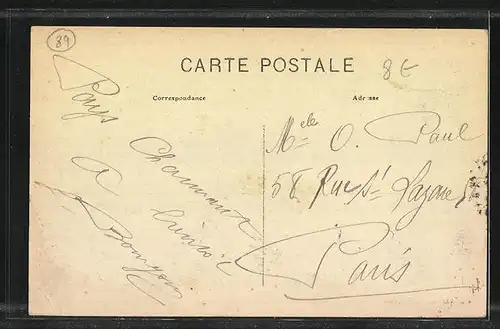 89
CARTE POSTALE
8E
Correspondance
Adresse
Pays
Charmant
A
Bonjour
Melle O. Paul
58 Rue St Lazare
Paris